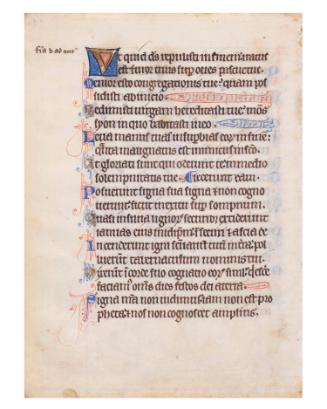 Ut quid ds repulisti in finem iratus
est furor tuus sup oves pascue tue.
Memor esto congregationis tue: quam pos
sedisti ab initio.
Redemisti virgam hereditatis tue: mons
syon in quo habitasti in eo.
Leva manus tuas in supbias eor in fine:
qnta malignatus est inimicus in sco.
Et gloriati sunt qui oderunt te: in medio
solempnitatis tue. eiecerunt eam.
Posuerunt signa sua signa et non cogno
verunt: sicut in exitu sup summum.
Quasi in silva lignor securib exciderunt
ianuas eius in idipsm: securi et ascia de
Incenderunt igni sctuarium tuu: in tra pol
luerunt tabernaculum nominis tui.
Dixerunt i corde suo cognatio eor simul: qescere
faciam oms dies festos dei a terra.
Signa nra non vidimus iam non est pro
pheta: et nos non cognoscet amplius.